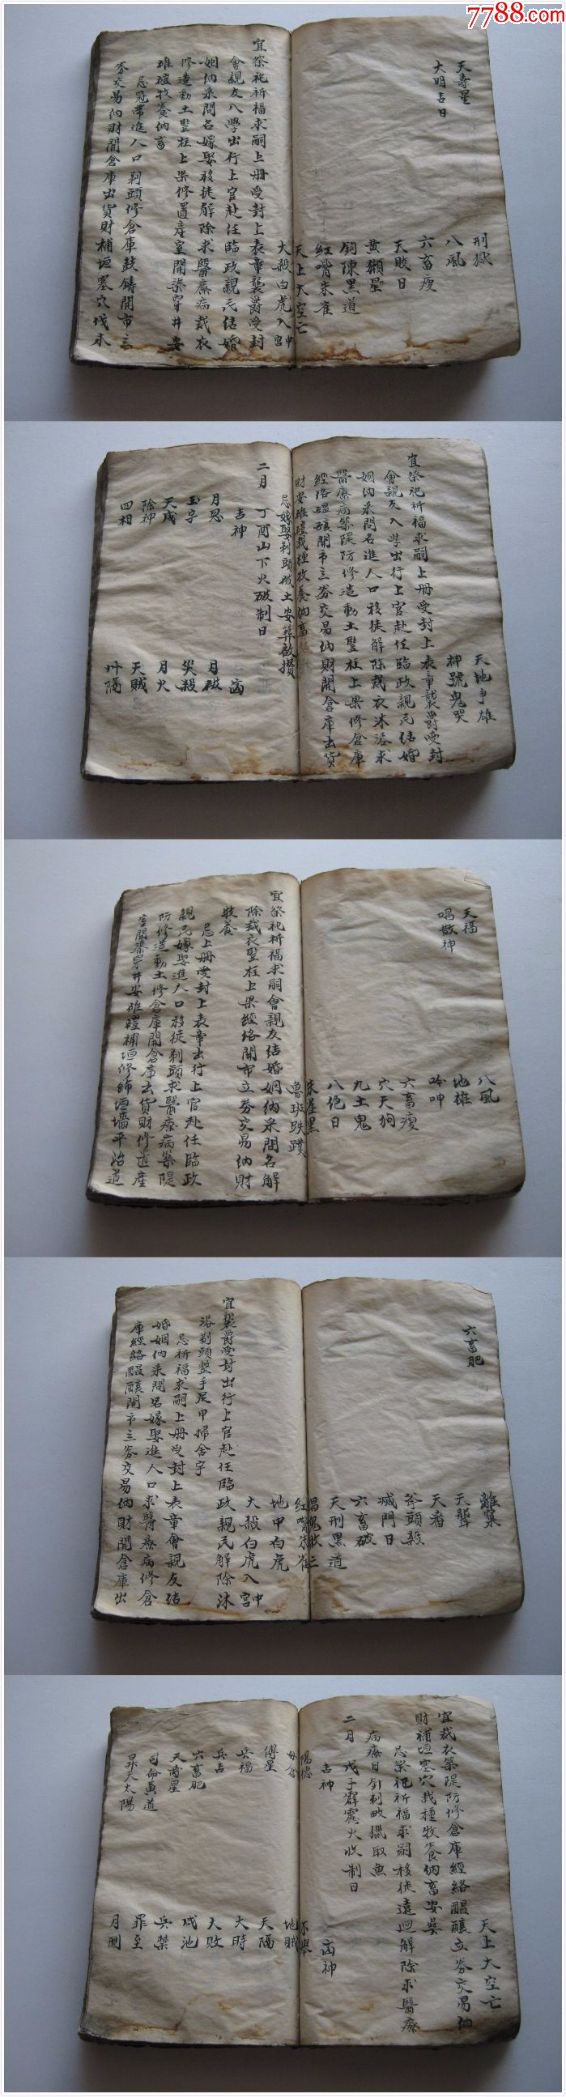 7788.com
天壽星
大明吉日
刑獄
八風
六畜瘦
天敗日
黄𤣗星
鈎陳黑道
紅嘴朱雀
天上大空亡
大殺白虎入中宮
宜祭祀祈福求嗣上册受封上表章襲爵受封
會親友入學出行上官赴任臨政親民結婚
姻納采問名嫁娶移徙解除求醫療病裁衣
修造動土豎柱上梁修置産室開渠穿井安
碓磑牧養納畜
忌冠帶進人口剃頭修倉庫鼓鑄開市立
券交易納財開倉庫出貨財補垣塞穴伐木
天地爭雄
神號鬼哭
宜祭祀祈福求嗣上册受封上表章襲爵受封
會親友入學出行上官赴任臨政親民結婚
姻納采問名進人口移徙解除裁衣沐浴求
醫療病築隄防修造動土豎柱上梁修倉庫
經絡醞釀開市立券交易納財開倉庫出貨
財安碓磑栽種牧養納畜
忌嫁娶剃頭破土安葬啟攢
二月 丁酉山下火破制日
吉神
月恩
玉宇
天成
除神
四相
凶
月破
災殺
月火
天賊
天福
鳴吠神
八風
地雄
呻吟
六畜瘦
穴天狗
九土鬼
八絶日
朱雀黑
魯班跌蹼
宜祭祀祈福求嗣會親友結婚姻納采問名解
除裁衣豎柱上梁經絡開市立券交易納財
牧養
忌上册受封上表章出行上官赴任臨政
親民嫁娶進人口移徙剃頭求醫療病築隄
防修造動土修倉庫開倉庫出貨財修置産
室開渠穿井安碓磑補垣修飾垣墻平治道
六畜肥
離窠
天聾
天瘠
斧頭殺
滅門日
六畜破
天刑黑道
紅嘴朱雀
地甲白虎
大殺白虎入中宮
宜襲爵受封出行上官赴任臨政親民解除沐
浴剃頭整手足甲掃舍宇
忌祈福求嗣上册受封上表章會親友結
婚姻納采問名嫁娶進人口求醫療病修倉
庫經絡醞釀開市立券交易納財開倉庫出
天上大空亡
宜裁衣築隄防修倉庫經絡醞釀立券交易納
財補垣塞穴栽種牧養納畜安葬
忌祭祀祈福求嗣移徙遠迴解除求醫療
病療目針刺畋獵取魚
二月 戊子霹靂火收制日
吉神
陽德
母倉
傳星
兵福
兵吉
六畜肥
天喬星
司命黄道
昇天太陽
凶神
不舉
地賊
天隔
大時
大敗
咸池
兵禁
罪至
月刑